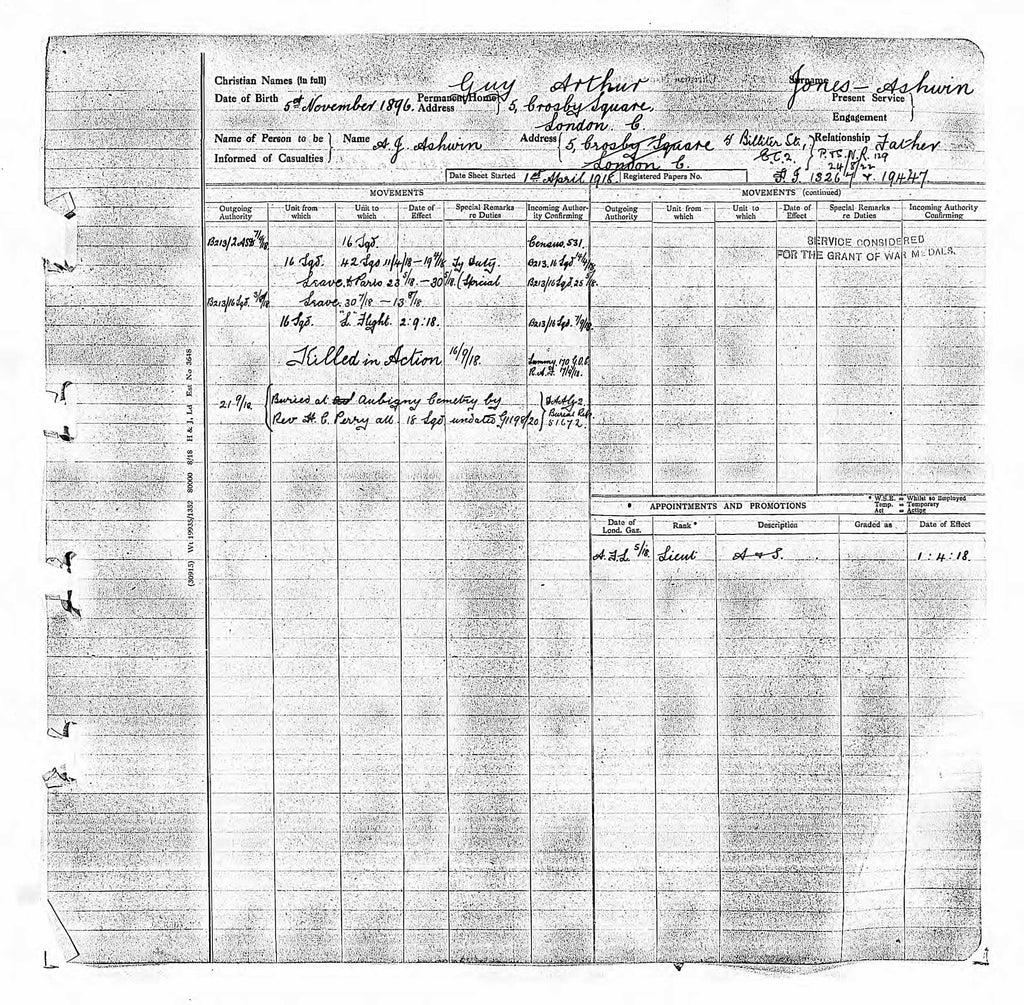 Christian Names (in full) Guy Arthur Surname Jones-Ashwin
Date of Birth 5th November 1896. Permanent/Home Address 5, Crosby Square, London. C. Present Service Engagement
Name of Person to be Informed of Casualties Name A.J. Ashwin Address 5, Crosby Square London. C. 4 Billiter St., E.C.2. Relationship Father
P.T.S. N.R. 129
24/8/22
Date Sheet Started 1st April 1918. Registered Papers No. 19447.
MOVEMENTS
MOVEMENTS (continued)
Outgoing Authority Unit from which Unit to which Date of Effect Special Remarks re Duties Incoming Authority Confirming Outgoing Authority Unit from which Unit to which Date of Effect Special Remarks re Duties Incoming Authority Confirming
16 Sqd. Census. 531.
SERVICE CONSIDERED
FOR THE GRANT OF WAR MEDALS.
16 Sqd. 42 Sqd 11/4/18 - Ty Duty. B213. 16 Sqd
Leave to Paris 23 5/18. - 30 5/18. (Special B213/16 Sqd. 25 5/18
B213/16 Sqd. Leave. 30 7/18 - 13 8/18.
16 Sqd. "L" Flight. 2:9:18. B213/16 Sqd. 7/9/18.
Killed in Action 16/9/18.
R.A.F. 17/9/18.
21 9/18. Buried at Aubigny Cemetery by
Rev H. C. Perry att. 18 Sqd undated G1198/20 Burial Rep. 51672.
(30915) Wt 19935/1332 80000 8/18 H & J, Ld Est No 3648
* W.S.E. = Whilst so Employed
Temp. = Temporary
Act = Acting
APPOINTMENTS AND PROMOTIONS
Date of Lond. Gaz. Rank * Description Graded as Date of Effect
A.F.L. 5/18. Lieut A & S. 1:4:18.